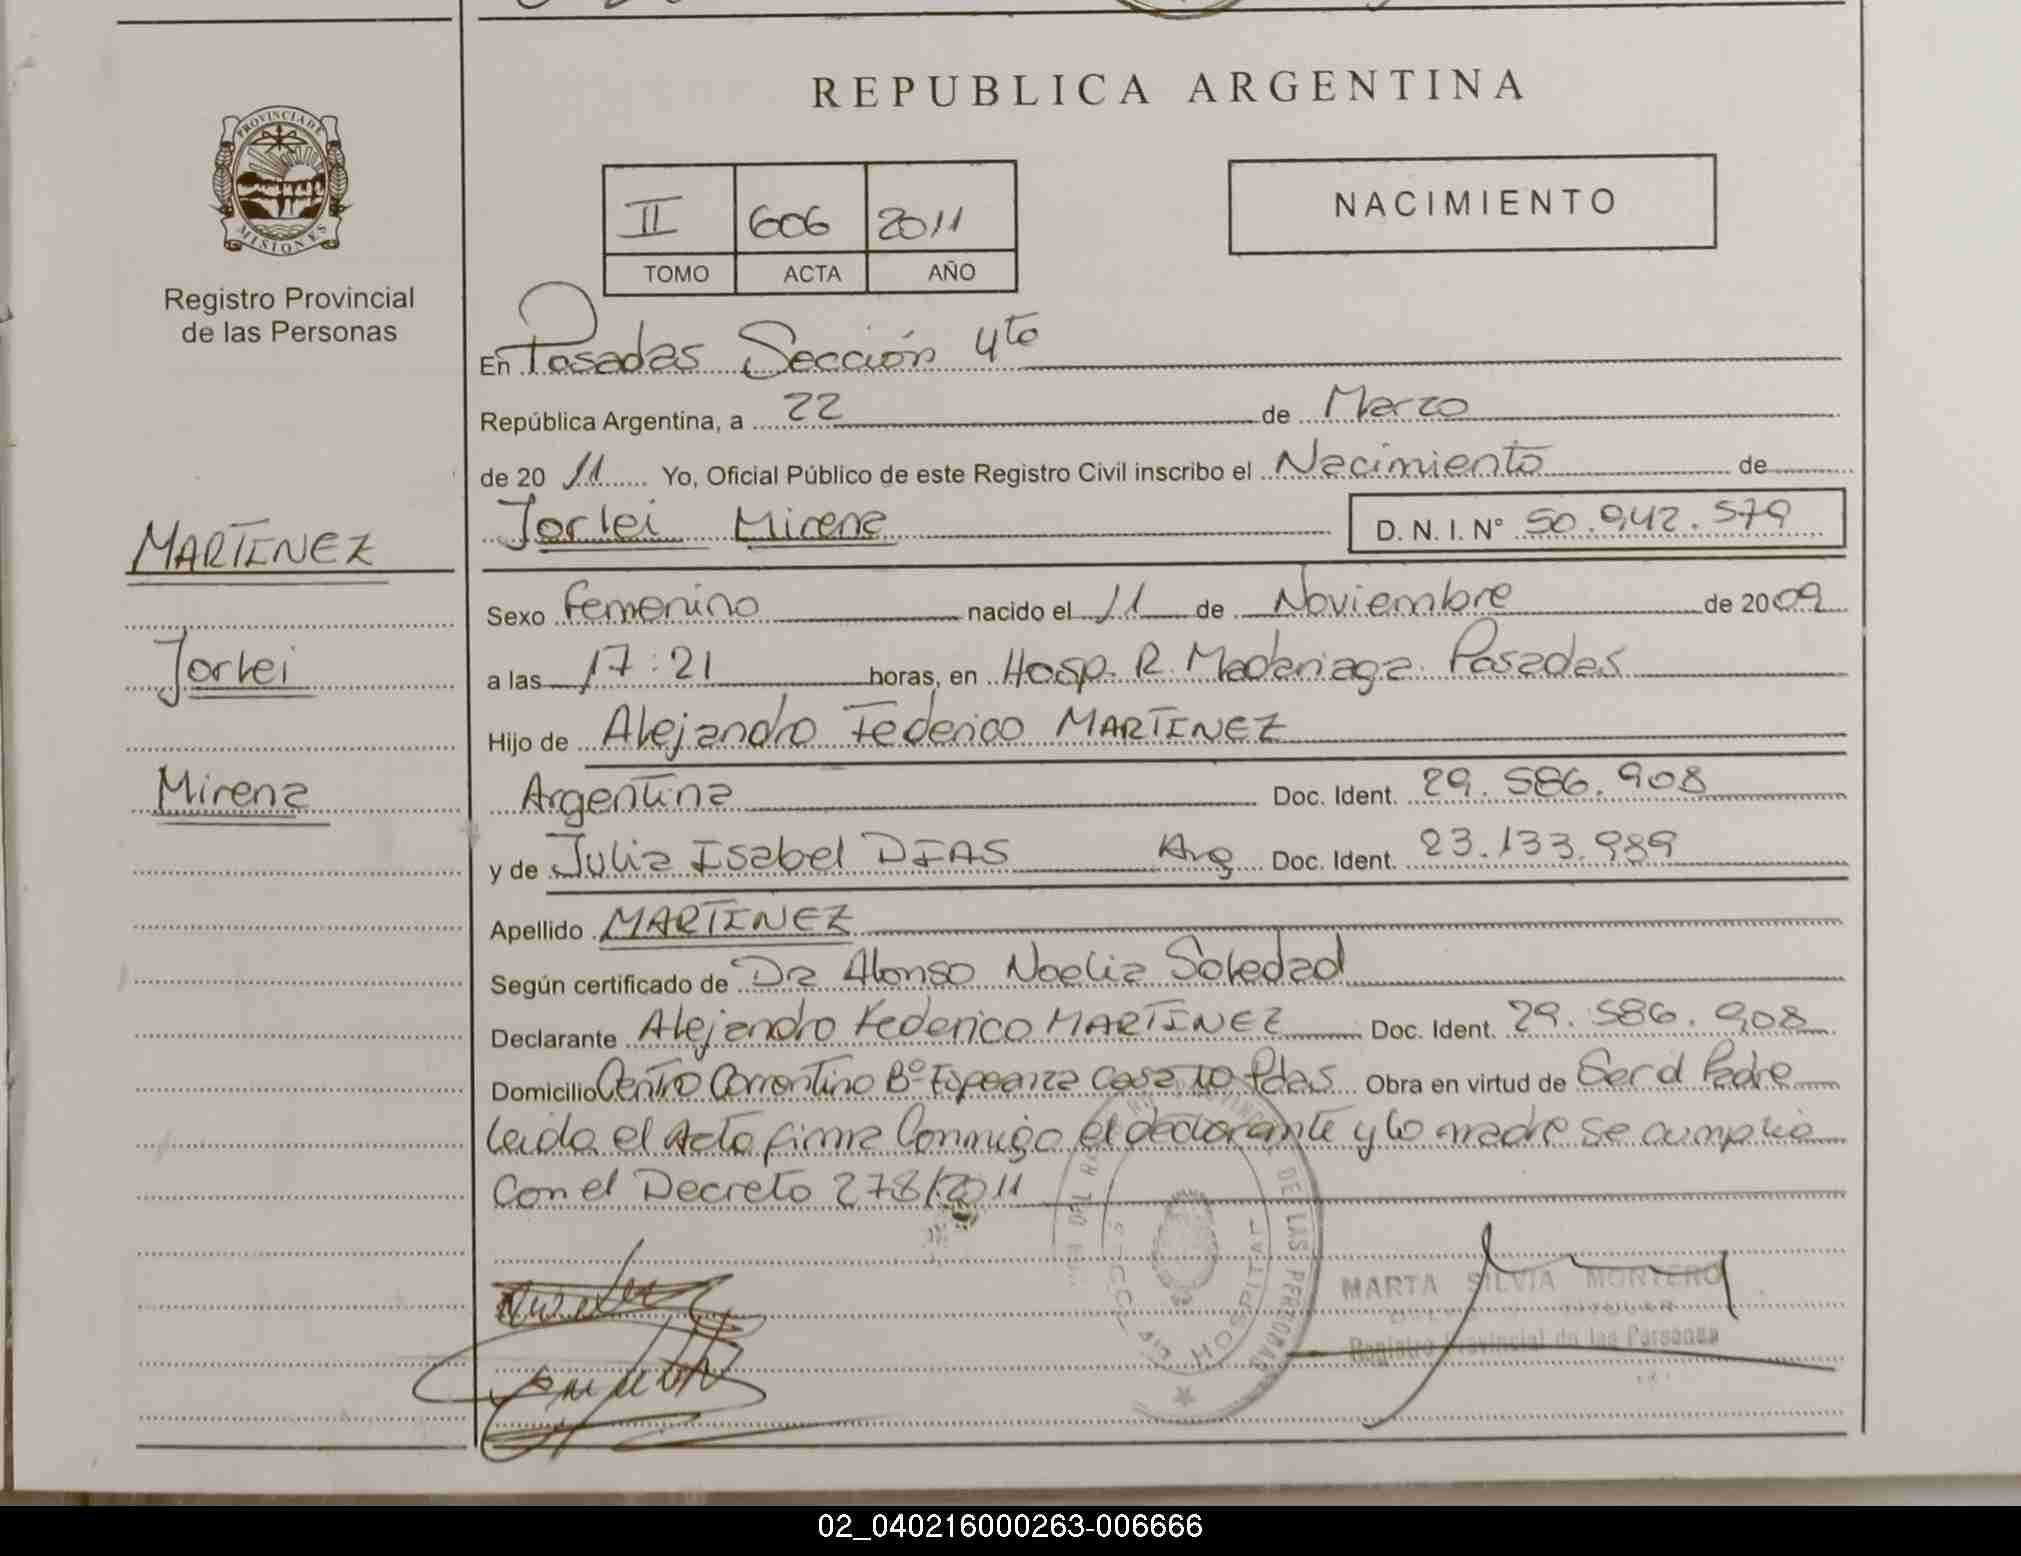 REPUBLICA ARGENTINA
PROVINCIA DE MISIONES
Registro Provincial
de las Personas
II 606 2011
TOMO ACTA AÑO
NACIMIENTO
En Posadas Sección 4to
República Argentina, a 22 de Marzo
de 20 11 Yo, Oficial Público de este Registro Civil inscribo el Nacimiento de
Jorlei Mirena D. N. I. N° 50.942.579
MARTINEZ
Jorlei
Mirena
Sexo femenino nacido el 11 de Noviembre de 2009
a las 17:21 horas, en Hosp. R. Madariaga. Posadas
Hijo de Alejandro Federico MARTINEZ
Argentina Doc. Ident. 29.586.908
y de Julia Isabel DIAS Arg Doc. Ident. 23.133.989
Apellido MARTINEZ
Según certificado de Dra Alonso Noelia Soledad
Declarante Alejandro Federico MARTINEZ Doc. Ident. 29.586.908
Domicilio Centro Correntino Bº Espeanza Casa 10 Pdas Obra en virtud de Ser el Padre
Leida el Acta firma Conmigo el declarante y la madre se cumplio
Con el Decreto 278/2011
DE LAS PERSONAS
HOSPITAL
MARTA SILVIA MONTERO
TITULAR
Registro Provincial de las Personas
02_040216000263-006666